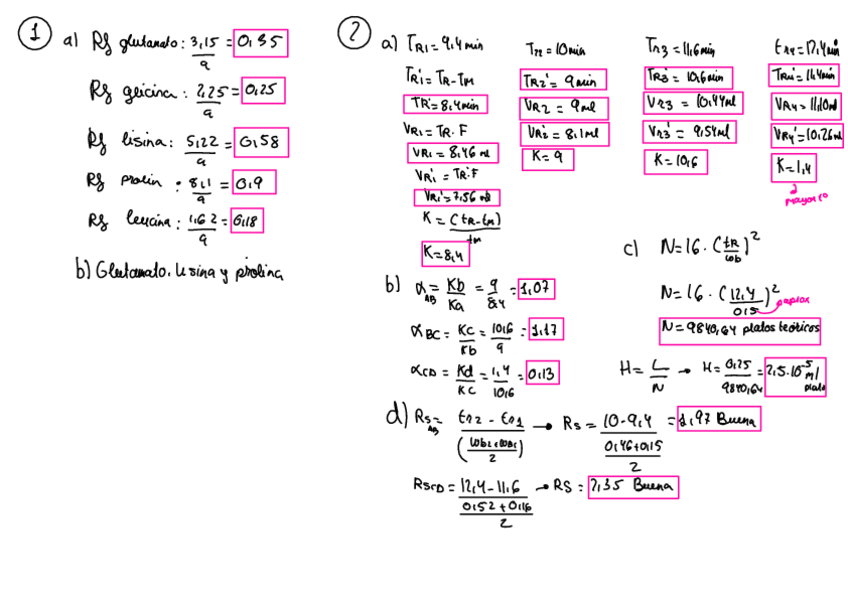 1 a) Rf glutamato: 3,15/9 = 0,35
Rf glicina: 2,25/9 = 0,25
Rf lisina: 5,22/9 = 0,58
Rf prolin: 8,1/9 = 0,9
Rf leucina: 1,62/9 = 0,18
b) Glutamato, lisina y prolina
2 a) TR1 = 9,4 min
TR1' = TR - TM
TR' = 8,4 min
VR1 = TR · F
VR1 = 8,46 ml
VR1' = TR'·F
VR1' = 7,56 ml
K = (tR - tM)/tM
K = 8,4
Tr2 = 10 min
TR2' = 9 min
VR2 = 9 ml
VR2' = 8,1 ml
K = 9
Tr3 = 11,6 min
TR3' = 10,6 min
VR3 = 10,44 ml
VR3' = 9,54 ml
K = 10,6
tR4 = 12,4 min
TR4' = 11,4 min
VR4 = 11,10 ml
VR4' = 10,26 ml
K = 1,4
b) αAB = Kb/Ka = 9/8,4 = 1,07
αBC = Kc/Kb = 10,6/9 = 1,17
αCD = Kd/Kc = 1,4/10,6 = 0,13
c) N = 16 · (tR/ωb)²
N = 16 · (12,4/0,5)²
N = 9840,64 platos teóricos
H = L/N → H = 0,25/9840,64 = 2,5·10⁻⁵ m/plato
d) RsAB = tR2 - tR1/((ωb2+ωb1)/2) → Rs = 10-9,4/((0,46+0,15)/2) = 1,97 Buena
RsCD = 12,4-11,6/((0,52+0,16)/2) → RS = 2,35 Buena